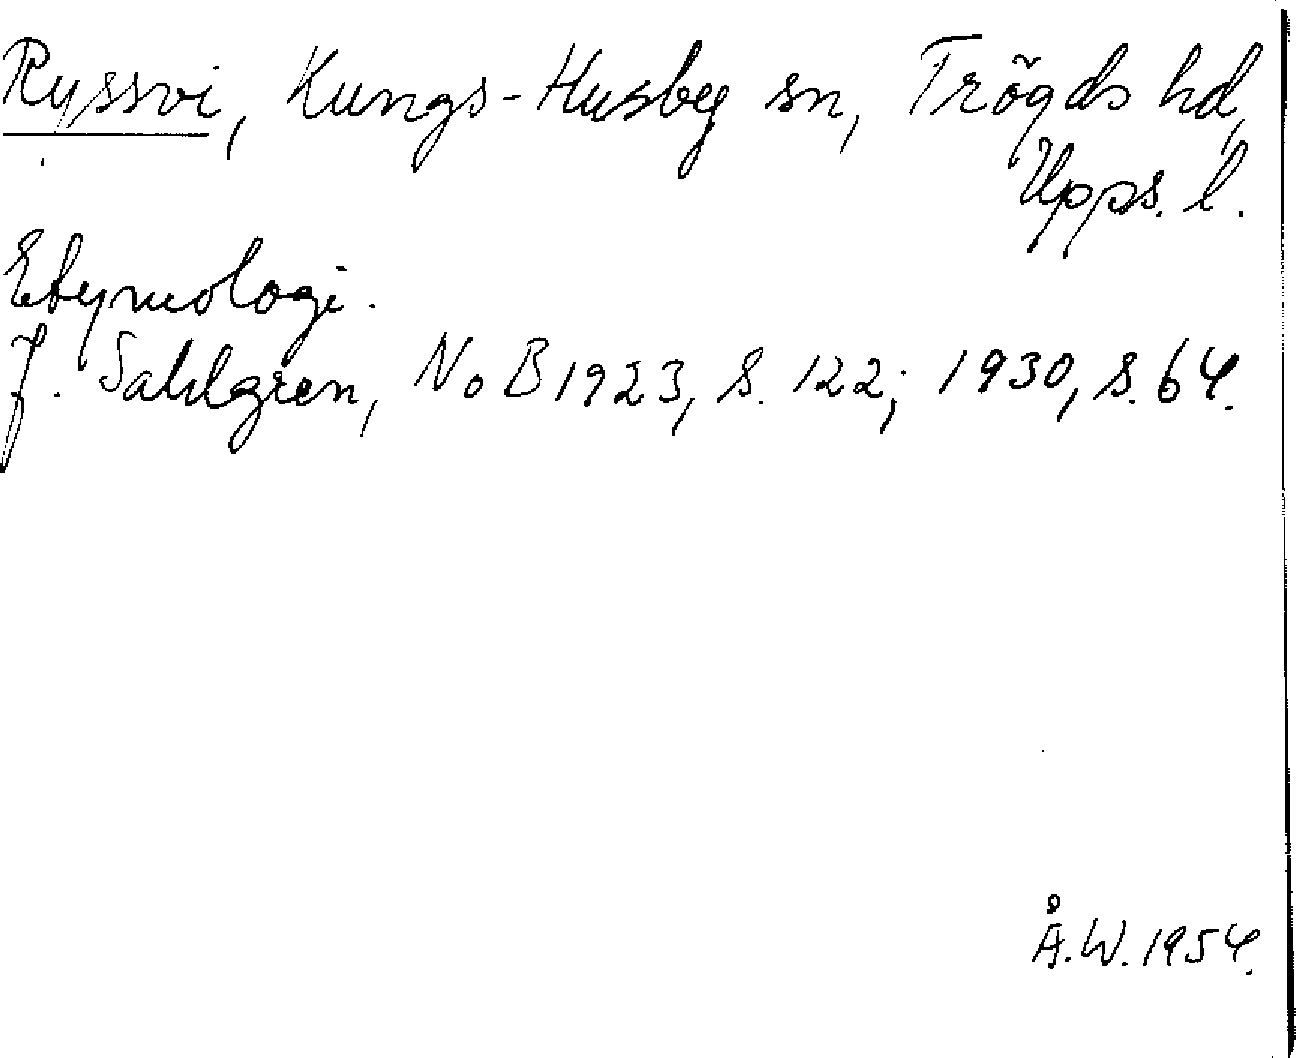 Ryssvi, Kungs-Husby sn, Trögds hd,
Upps. l.
Etymologi.
J. Sahlgren, NoB 1923, s. 122; 1930, s. 64.
Å.W. 1954.